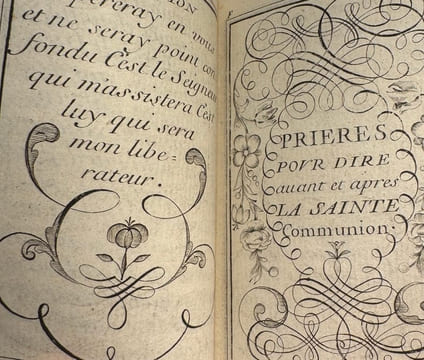 ION
pereray en vous
et ne seray point con
fondu C'est le Seigneur
qui m'assistera C'est
luy qui sera
mon libe=
rateur.
PRIERES
POVR DIRE
auant et apres
LA SAINTE
Communion.